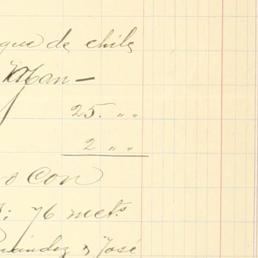 que de chile
Kban—
25. „ „
2 „ „
o Con
; 76 mets
nández y José